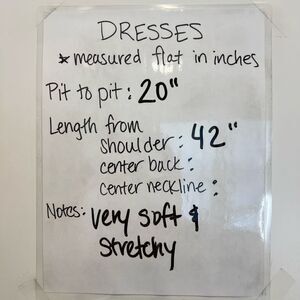 DRESSES
* measured flat in inches
Pit to pit: 20"
Length from
shoulder: 42"
center back:
center neckline:
Notes: very soft &
stretchy